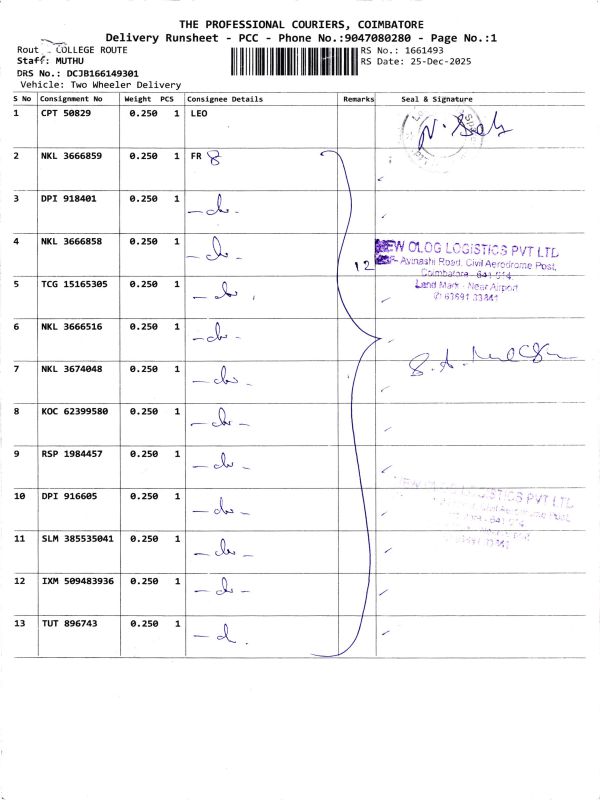 THE PROFESSIONAL COURIERS, COIMBATORE
Delivery Runsheet - PCC - Phone No.:9047080280 - Page No.:1
Rout COLLEGE ROUTE
RS No.: 1661493
Staff: MUTHU
RS Date: 25-Dec-2025
DRS No.: DCJB166149301
Vehicle: Two Wheeler Delivery
S No Consignment No Weight PCS Consignee Details Remarks Seal & Signature
1 CPT 50829 0.250 1 LEO
2 NKL 3666859 0.250 1 FR 8
3 DPI 918401 0.250 1 - do -
4 NKL 3666858 0.250 1 - do -
12
EW OLOG LOGISTICS PVT LTD
Avinashi Road, Civil Aerodrome Post,
Coimbatore - 641 014.
Land Mark - Near Airport
5 TCG 15165305 0.250 1 - do -
6 NKL 3666516 0.250 1 - do -
7 NKL 3674048 0.250 1 - do -
8 KOC 62399580 0.250 1 - do -
9 RSP 1984457 0.250 1 - do -
10 DPI 916605 0.250 1 - do -
EW OLOG LOGISTICS PVT LTD
11 SLM 385535041 0.250 1 - do -
12 IXM 509483936 0.250 1 - do -
13 TUT 896743 0.250 1 - d.